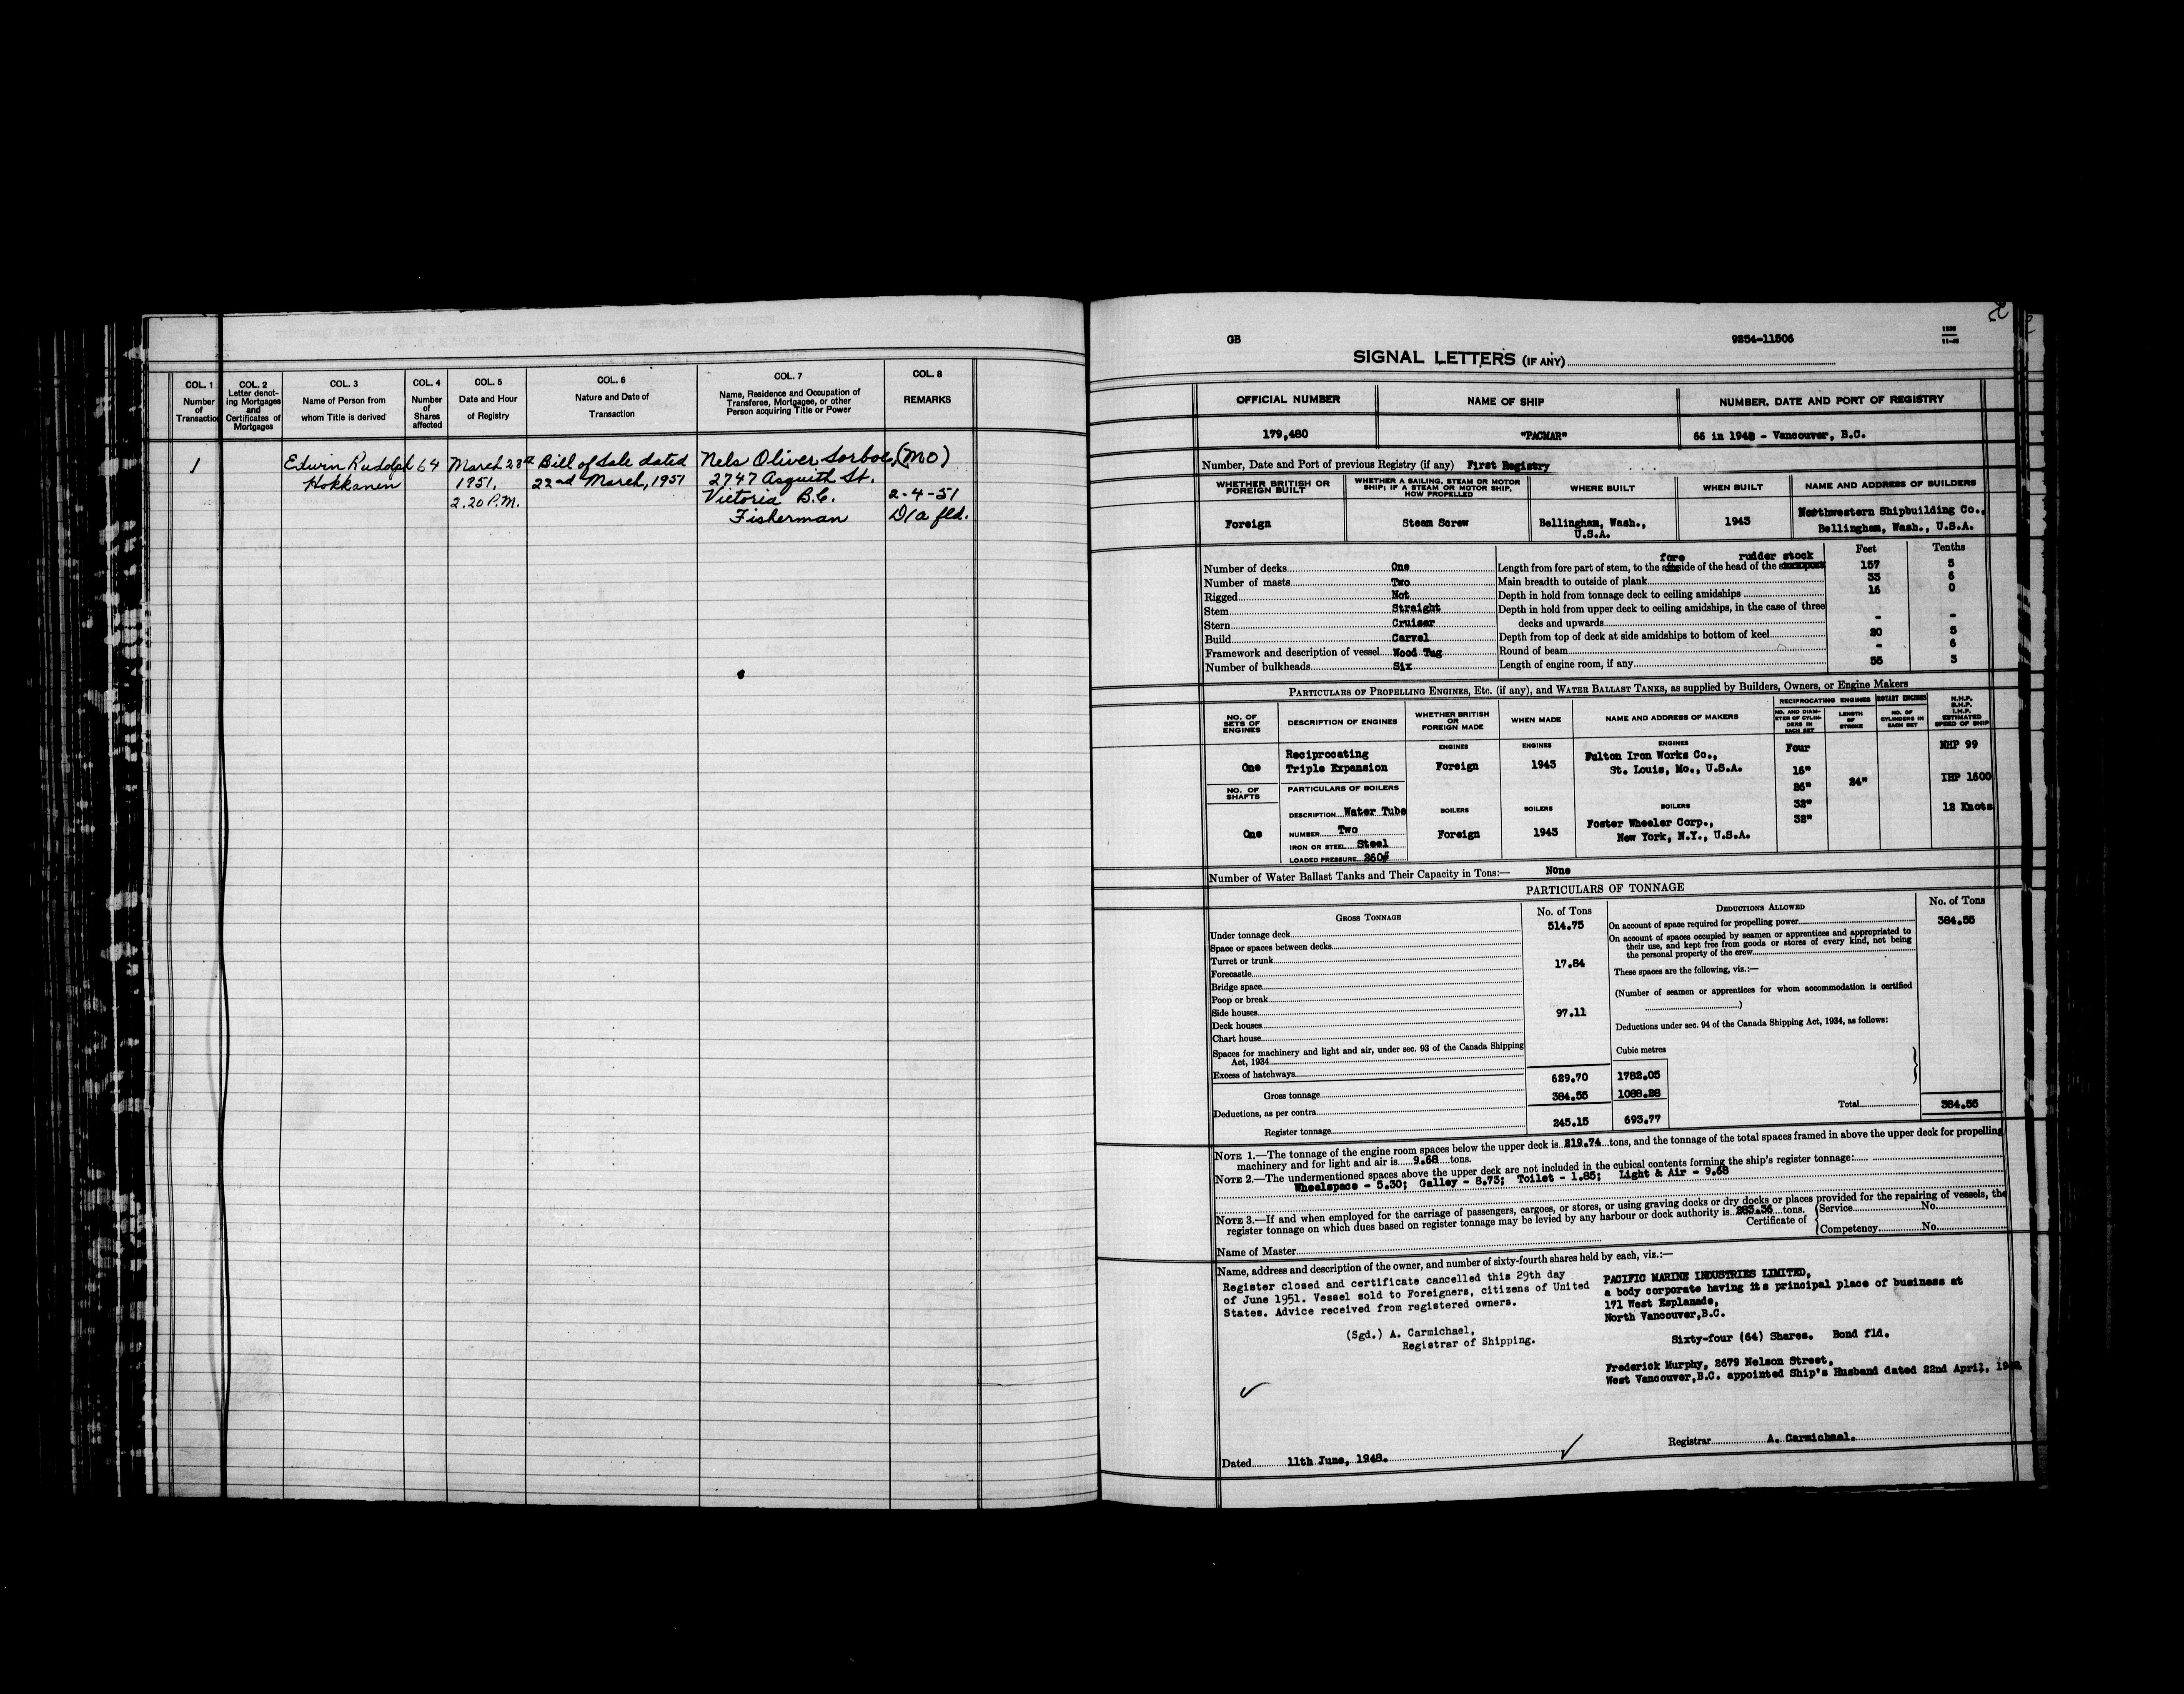 COL. 1
Number
of
Transaction
COL. 2
Letter denot-
ing Mortgages
and
Certificates of
Mortgages
COL. 3
Name of Person from
whom Title is derived
COL. 4
Number
of
Shares
affected
COL. 5
Date and Hour
of Registry
COL. 6
Nature and Date of
Transaction
COL. 7
Name, Residence and Occupation of
Transferee, Mortgagee, or other
Person acquiring Title or Power
COL. 8
REMARKS
1 Edwin Rudolph 64 March 28th Bill of Sale dated Nels Oliver Sorboe, (MO)
Hokkanen 1951, 22nd March, 1951 2747 Asquith St.
2.20 P.M. Victoria B.C. 2-4-51
Fisherman D/a fld.
GB 9254-11506
SIGNAL LETTERS (IF ANY)
OFFICIAL NUMBER NAME OF SHIP NUMBER, DATE AND PORT OF REGISTRY
179,480 "PACMAR" 66 in 1948 - Vancouver, B.C.
Number, Date and Port of previous Registry (if any) First Registry
WHETHER BRITISH OR
FOREIGN BUILT
WHETHER A SAILING, STEAM OR MOTOR
SHIP; IF A STEAM OR MOTOR SHIP,
HOW PROPELLED
WHERE BUILT
WHEN BUILT
NAME AND ADDRESS OF BUILDERS
Foreign
Steam Screw
Bellingham, Wash.,
U.S.A.
1943
Northwestern Shipbuilding Co.,
Bellingham, Wash., U.S.A.
Number of decks One
Number of masts Two
Rigged Not
Stem Straight
Stern Cruiser
Build Carvel
Framework and description of vessel Wood Tug
Number of bulkheads Six
Feet Tenths
fore rudder stock
Length from fore part of stem, to the side of the head of the 157 5
Main breadth to outside of plank 33 6
Depth in hold from tonnage deck to ceiling amidships 16 0
Depth in hold from upper deck to ceiling amidships, in the case of three
decks and upwards - -
Depth from top of deck at side amidships to bottom of keel 20 5
Round of beam - 6
Length of engine room, if any 55 3
PARTICULARS OF PROPELLING ENGINES, ETC. (if any), and WATER BALLAST TANKS, as supplied by Builders, Owners, or Engine Makers
NO. OF
SETS OF
ENGINES
DESCRIPTION OF ENGINES
WHETHER BRITISH
OR
FOREIGN MADE
WHEN MADE
NAME AND ADDRESS OF MAKERS
RECIPROCATING ENGINES
NO. AND DIAM-
ETER OF CYLIN-
DERS IN
EACH SET
LENGTH
OF
STROKE
ROTARY ENGINES
NO. OF
CYLINDERS IN
EACH SET
N.H.P.
B.H.P.
I.H.P.
ESTIMATED
SPEED OF SHIP
One
Reciprocating
Triple Expansion
ENGINES
Foreign
ENGINES
1943
ENGINES
Fulton Iron Works Co.,
St. Louis, Mo., U.S.A.
Four
16"
26"
32"
32"
24"
NHP 99
IHP 1600
12 Knots
NO. OF
SHAFTS
One
PARTICULARS OF BOILERS
DESCRIPTION Water Tube
NUMBER Two
IRON OR STEEL Steel
LOADED PRESSURE 260#
BOILERS
Foreign
BOILERS
1943
BOILERS
Foster Wheeler Corp.,
New York, N.Y., U.S.A.
Number of Water Ballast Tanks and Their Capacity in Tons:— None
PARTICULARS OF TONNAGE
GROSS TONNAGE No. of Tons
Under tonnage deck 514.75
Space or spaces between decks
Turret or trunk
Forecastle 17.84
Bridge space
Poop or break
Side houses
Deck houses 97.11
Chart house
Spaces for machinery and light and air, under sec. 93 of the Canada Shipping
Act, 1934
Excess of hatchways
Cubic metres
Gross tonnage 629.70 1782.05
Deductions, as per contra 384.55 1088.28
Register tonnage 245.15 693.77
DEDUCTIONS ALLOWED No. of Tons
On account of space required for propelling power 384.55
On account of spaces occupied by seamen or apprentices and appropriated to
their use, and kept free from goods or stores of every kind, not being
the personal property of the crew
These spaces are the following, viz.:—
(Number of seamen or apprentices for whom accommodation is certified
)
Deductions under sec. 94 of the Canada Shipping Act, 1934, as follows:
Total 384.55
NOTE 1.—The tonnage of the engine room spaces below the upper deck is 219.74 tons, and the tonnage of the total spaces framed in above the upper deck for propelling
machinery and for light and air is 9.68 tons.
NOTE 2.—The undermentioned spaces above the upper deck are not included in the cubical contents forming the ship's register tonnage:
Wheelspace - 5.30; Galley - 8.73; Toilet - 1.85; Light & Air - 9.68
NOTE 3.—If and when employed for the carriage of passengers, cargoes, or stores, or using graving docks or dry docks or places provided for the repairing of vessels, the
register tonnage on which dues based on register tonnage may be levied by any harbour or dock authority is 283.36 tons.
Certificate of
Service No.
Competency No.
Name of Master
Name, address and description of the owner, and number of sixty-fourth shares held by each, viz.:—
Register closed and certificate cancelled this 29th day
of June 1951. Vessel sold to Foreigners, citizens of United
States. Advice received from registered owners.
(Sgd.) A. Carmichael,
Registrar of Shipping.
PACIFIC MARINE INDUSTRIES LIMITED,
a body corporate having its principal place of business at
171 West Esplanade,
North Vancouver, B.C.
Sixty-four (64) Shares. Bond fld.
Frederick Murphy, 2679 Nelson Street,
West Vancouver, B.C. appointed Ship's Husband dated 22nd April,
Dated 11th June, 1948.
Registrar A. Carmichael.